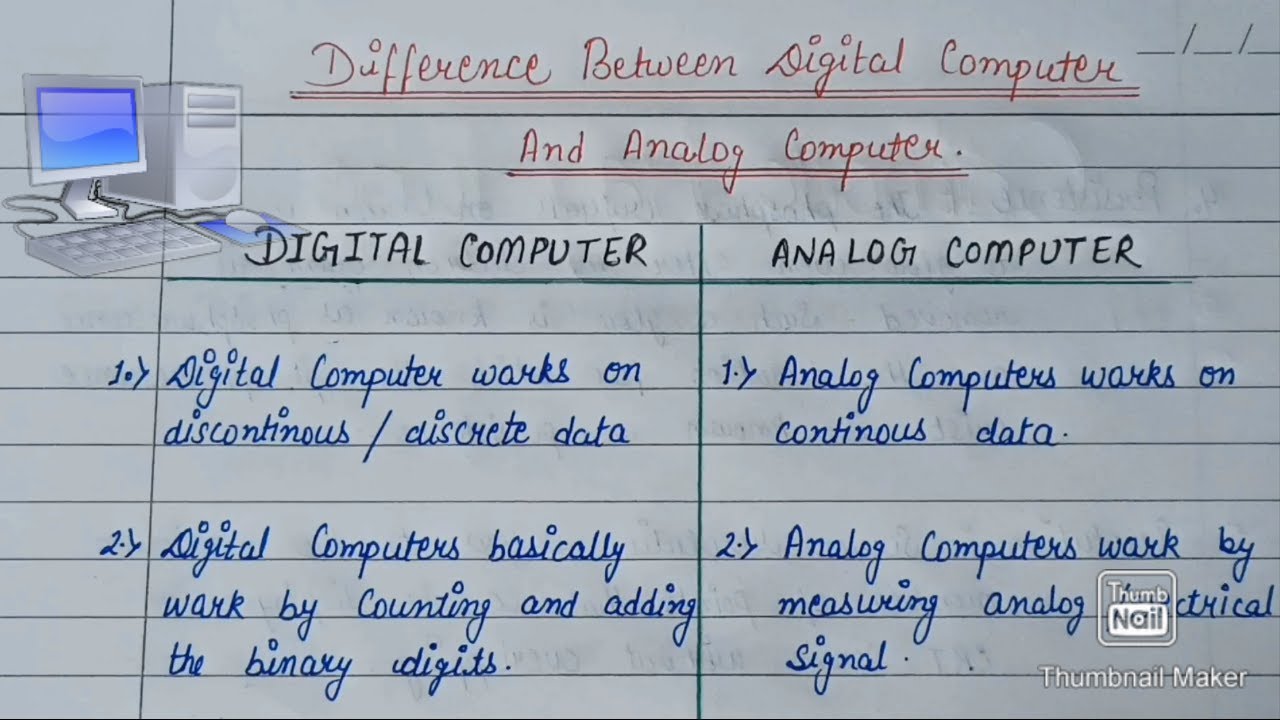 __/__/__
Difference Between Digital Computer
And Analog Computer.
DIGITAL COMPUTER
ANALOG COMPUTER
1.) Digital Computer works on
discontinous / discrete data
1.) Analog Computers works on
continous data.
2.) Digital Computers basically
work by Counting and adding
the binary digits.
2.) Analog Computers work by
measuring analog ctrical
signal.
Thumb
Nail
Thumbnail Maker